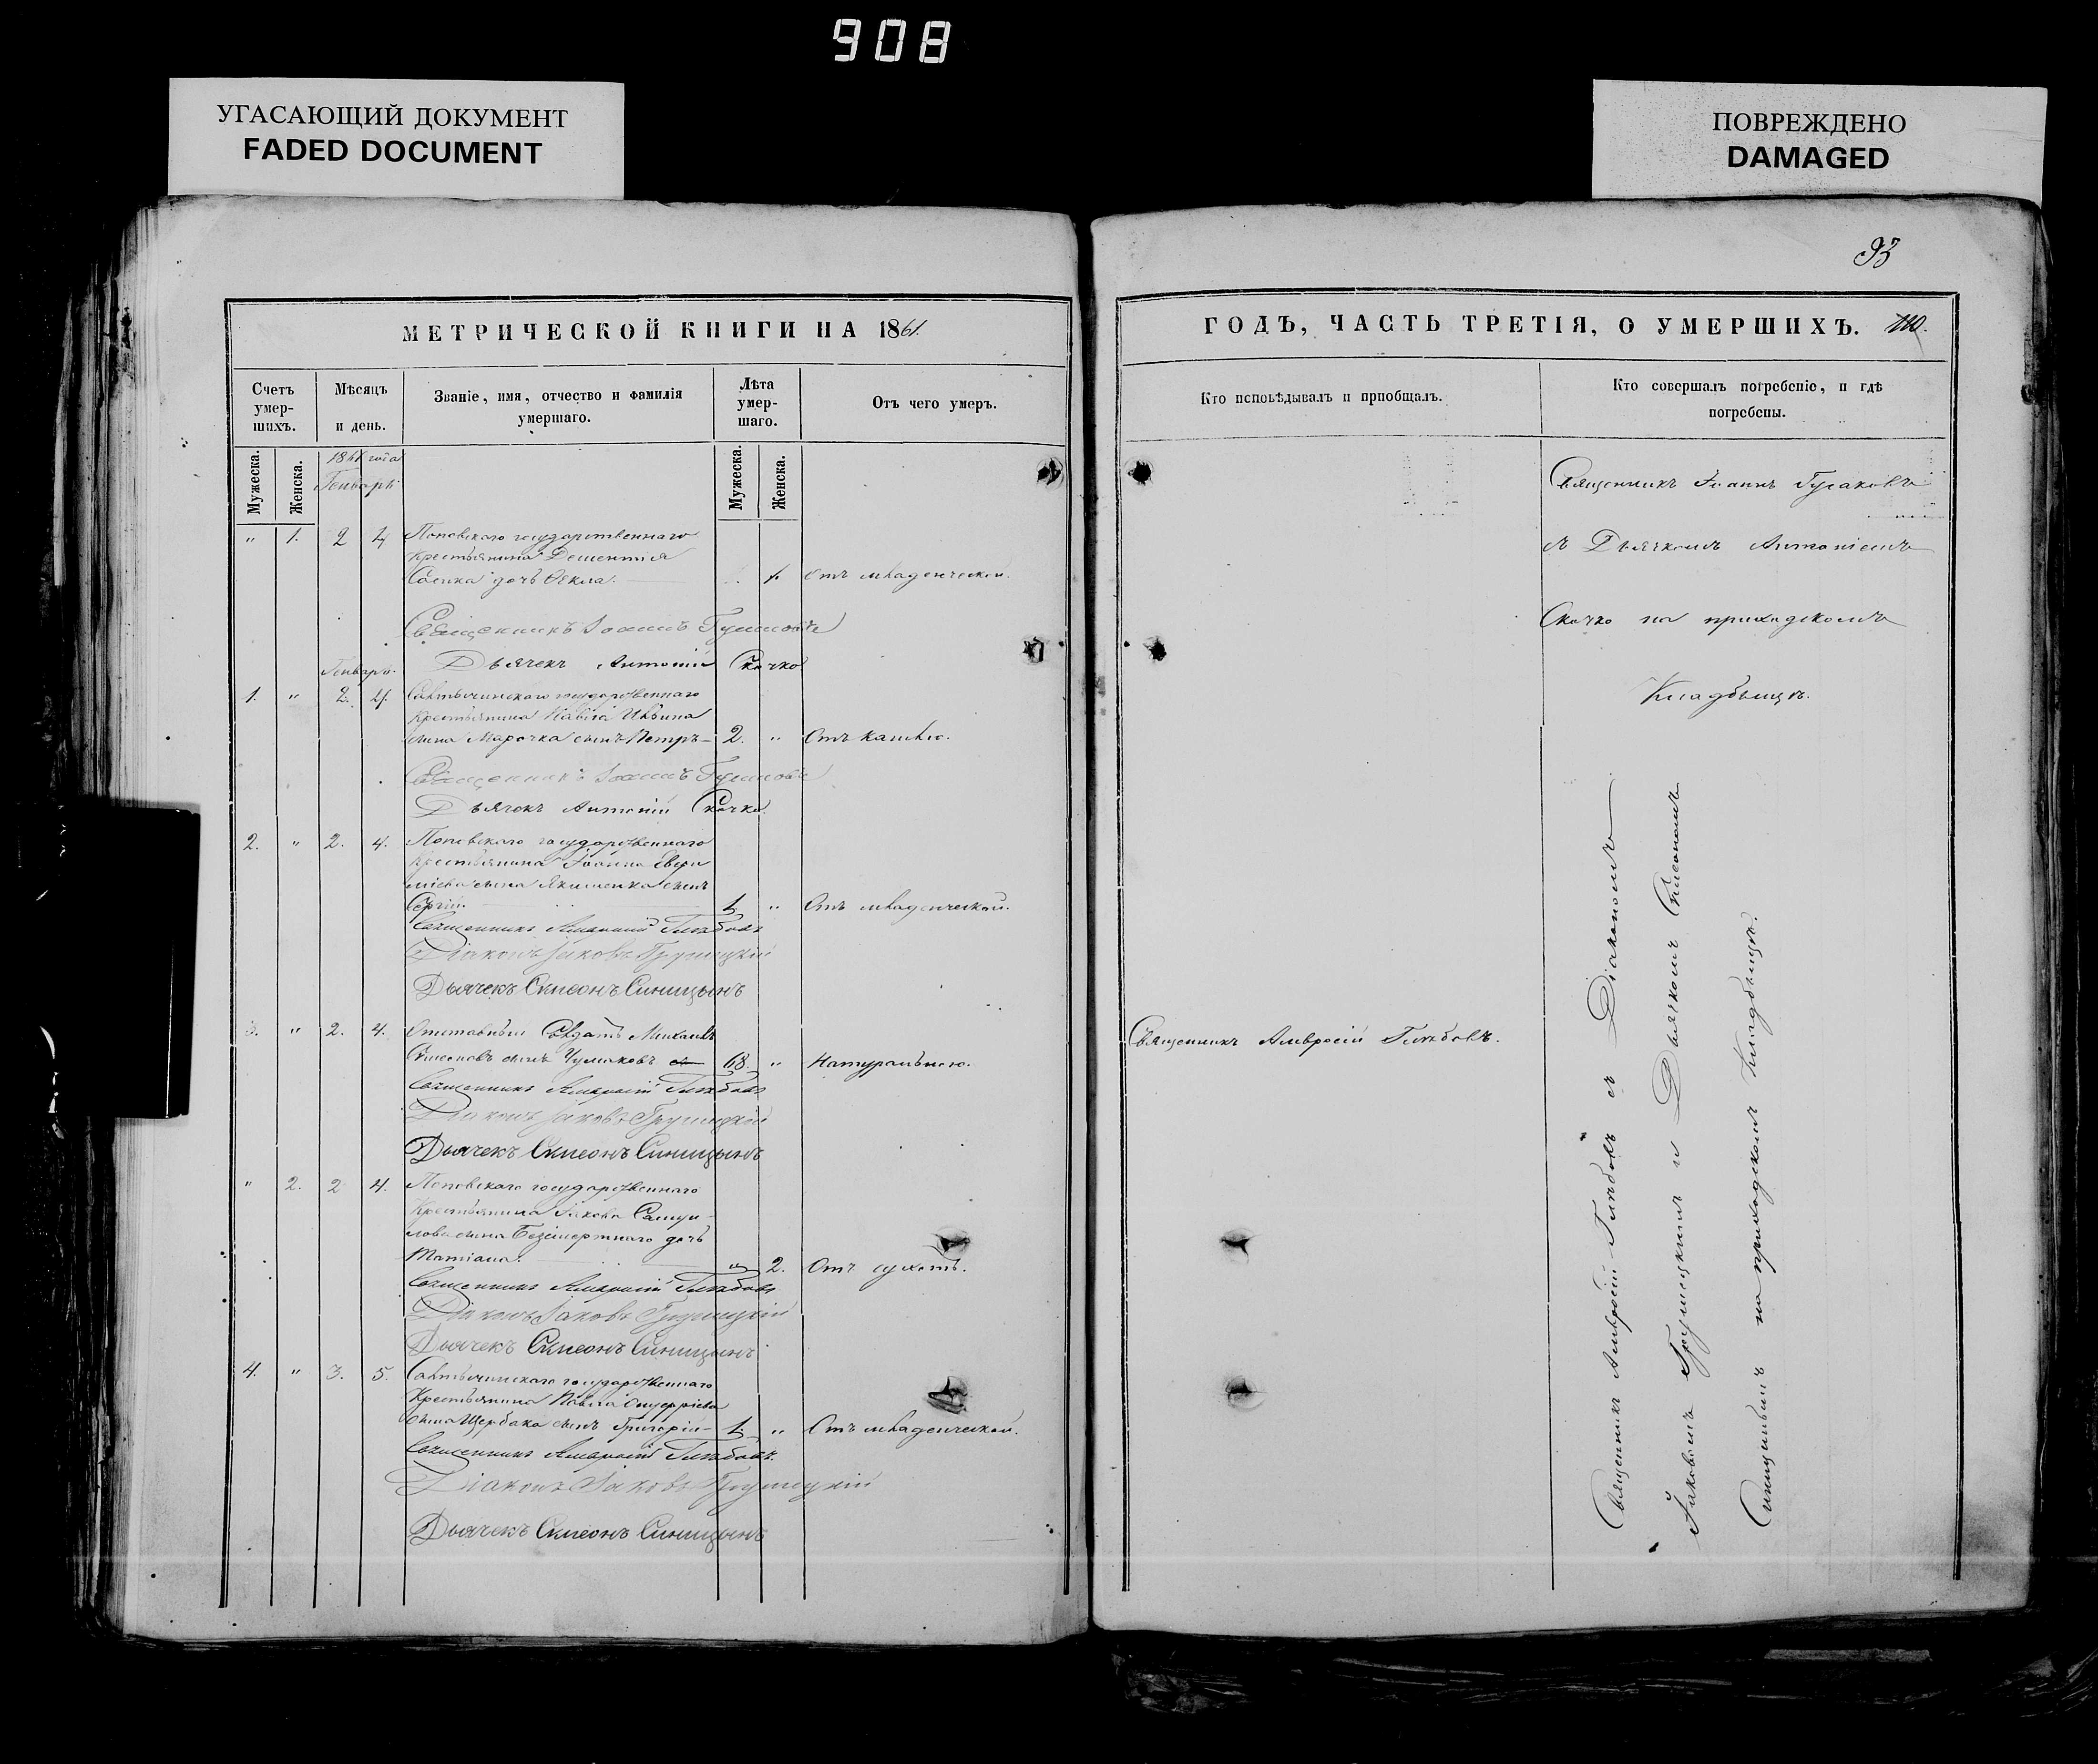 908
УГАСАЮЩИЙ ДОКУМЕНТ
FADED DOCUMENT
ПОВРЕЖДЕНО
DAMAGED
93
МЕТРИЧЕСКОЙ КНИГИ НА 1861.
Счетъ умер-шихъ.
Мѣсяцъ и день.
Званіе, имя, отчество и фамилія умершаго.
Лѣта умер-шаго.
Отъ чего умеръ.
Мужеска.
Женска.
Мужеска.
Женска.
1861 года
Генварь
" 1. 2 4 Поповского государственнаго
крестьянина Дементія
дочь Ѳекла. 1. Отъ младенческой.
Священникъ Іоаннъ
Дьячекъ Антоній Скочко
Генварь.
1. " 2. 4. государственнаго
крестьянина Павла
сына Марочка сынъ Петръ 2. " Отъ кашлю.
Священникъ Іоаннъ
Дьячекъ Антоній Скочко
2. " 2. 4. Поповского государственнаго
крестьянина Іоанна
сына Якименка сынъ
Сергій. 1. " Отъ младенческой.
Священникъ Амвросій Глѣбовъ
Діаконъ Іаковъ Грушецкій
Дьячекъ Симеонъ Синицынъ
3. " 2. 4. Отставный Солдатъ Михаилъ
Симеоновъ сынъ Чумаковъ 68. " Натуральною.
Священникъ Амвросій Глѣбовъ
Діаконъ Іаковъ Грушецкій
Дьячекъ Симеонъ Синицынъ
" 2. 2 4. Поповского государственнаго
крестьянина Іакова Самуи-
лова сына Безсмертнаго дочь
Татіана. " 2. Отъ сухотъ.
Священникъ Амвросій Глѣбовъ
Діаконъ Іаковъ Грушецкій
Дьячекъ Симеонъ Синицынъ
4. " 3. 5. государственнаго
крестьянина Павла Онуфріева
сына Щербака сынъ Григорій 1. " Отъ младенческой.
Священникъ Амвросій Глѣбовъ.
Діаконъ Іаковъ Грушецкій
Дьячекъ Симеонъ Синицынъ
ГОДЪ, ЧАСТЬ ТРЕТІЯ, О УМЕРШИХЪ. 110.
Кто исповѣдывалъ и пріобщалъ.
Кто совершалъ погребеніе, и гдѣ погребены.
Священникъ Іоаннъ
съ Дьячкомъ Антоніемъ
Скочко на приходскомъ
Кладбищѣ.
Священникъ Амвросій Глѣбовъ.
Священникъ Амвросій Глѣбовъ съ Діакономъ
Іаковомъ Грушецкимъ и Дьячкомъ Симеономъ
Синицынымъ на приходскомъ Кладбищѣ.